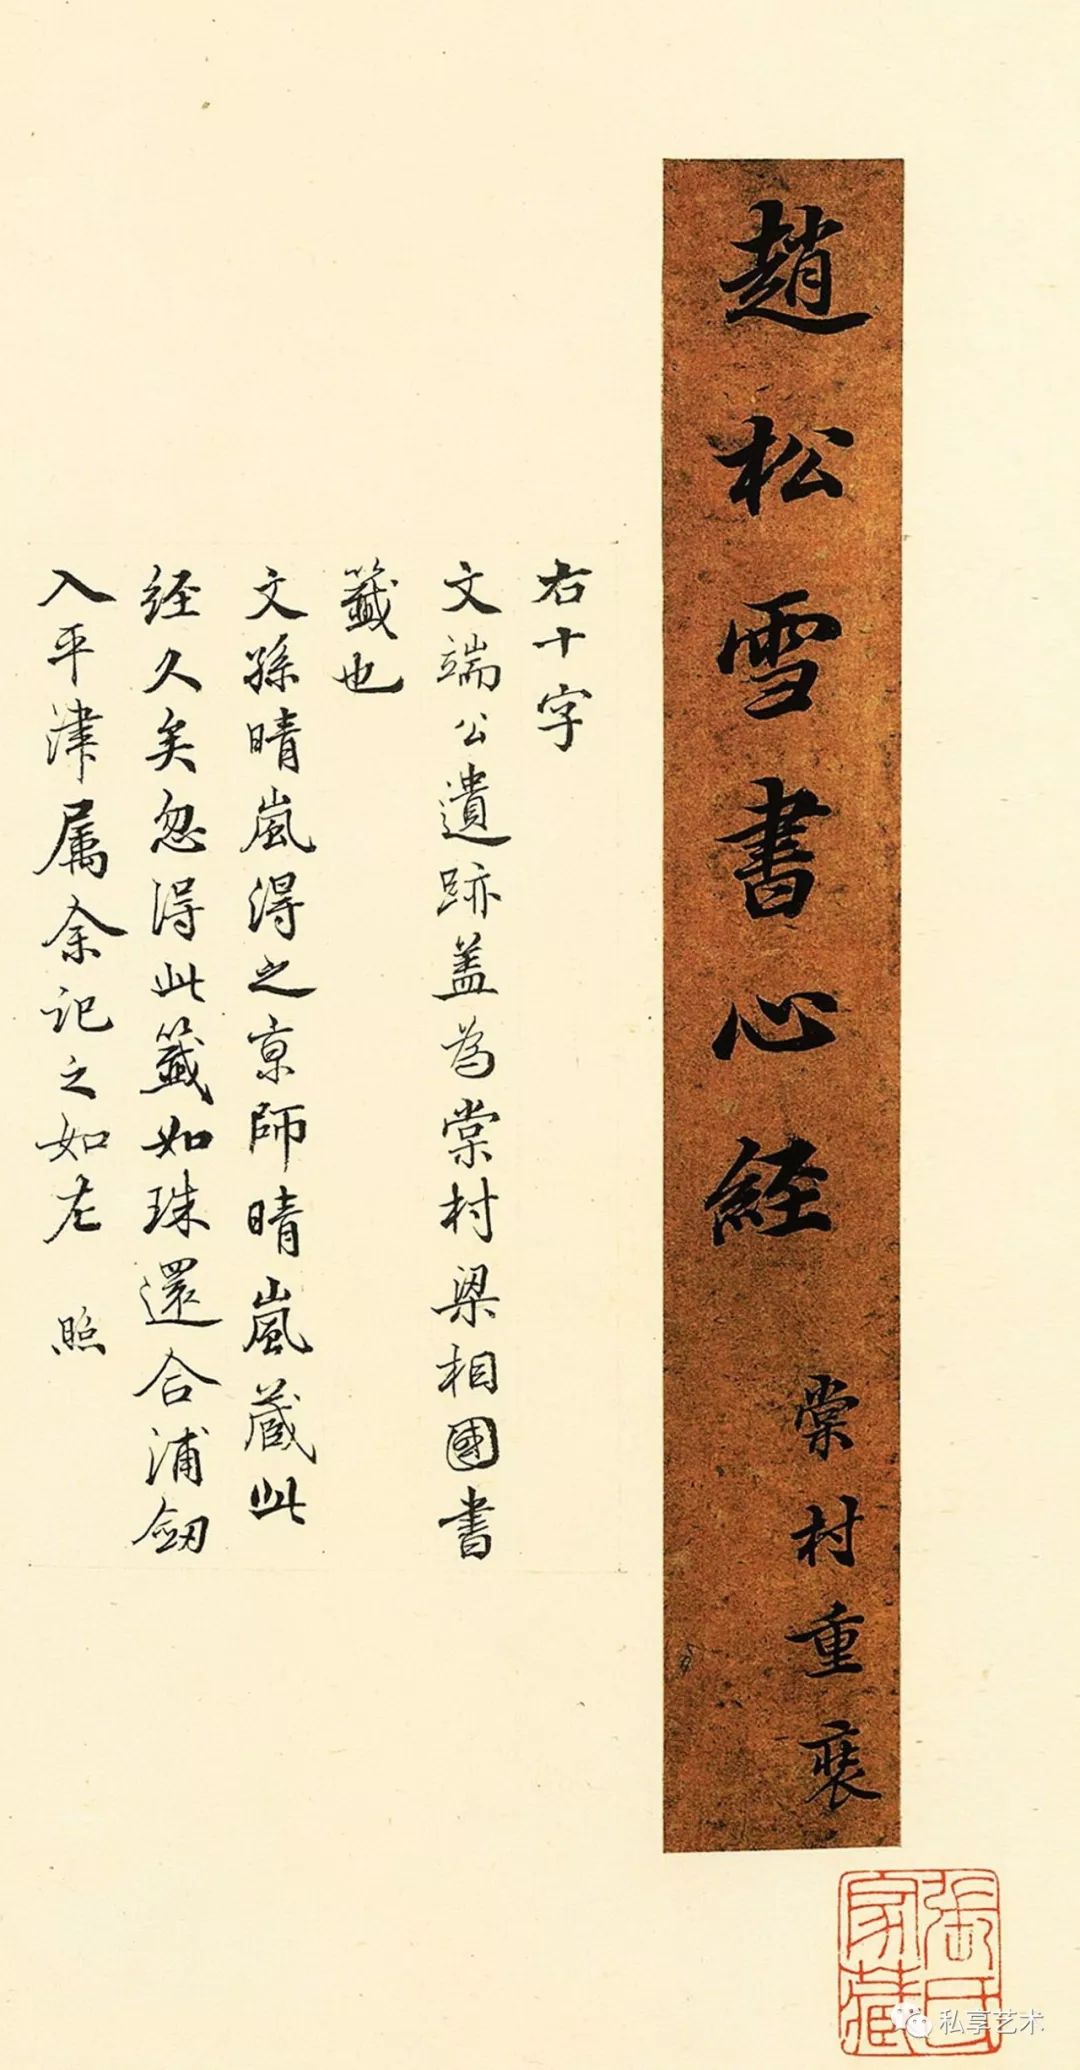 趙松雪書心経
棠村重裝
右十字
文端公遺跡蓋為棠村梁相國書
籖也
文孫晴嵐得之京師晴嵐蔵此
経久矣忽得此籖如珠還合浦劔
入平津属余記之如左 照
張氏家藏
私享艺术